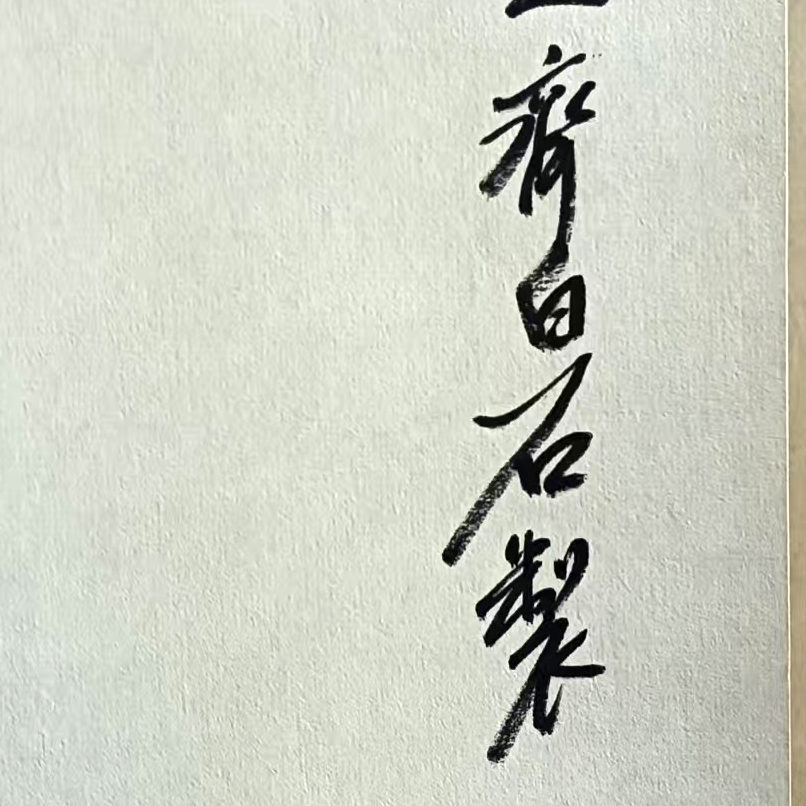 齊白石製